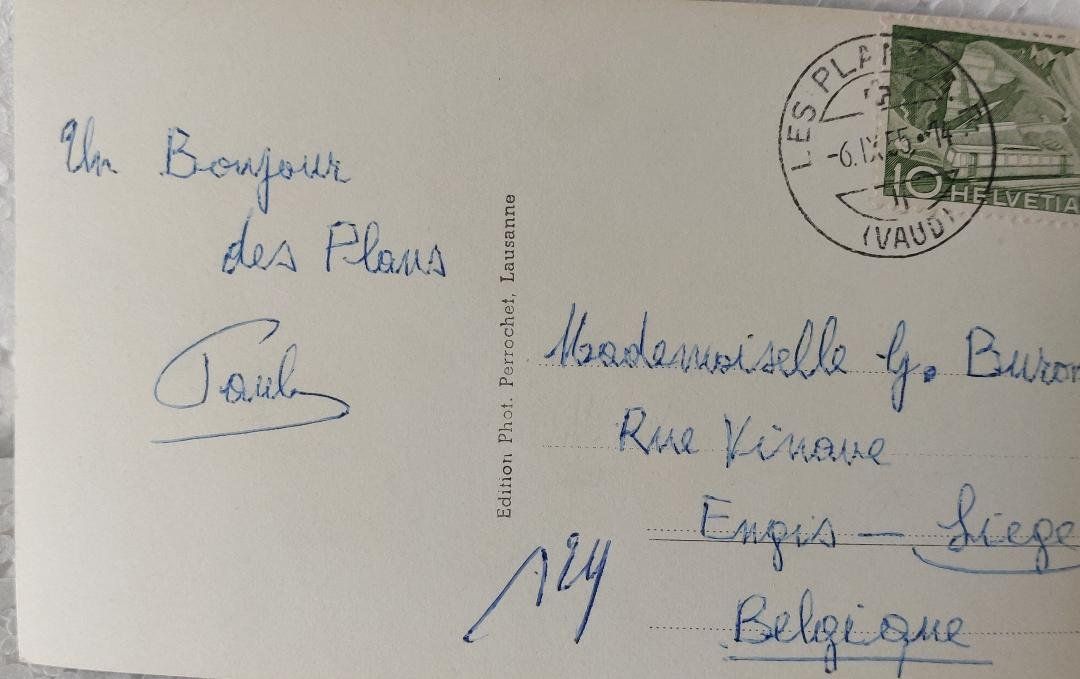 Un Bonjour
des Plans
Paul
Edition Phot. Perrochet, Lausanne
LES PLAN
-6.IX.55.-14
(VAUD)
10 HELVETIA
Mademoiselle G. Buron
Rue Vinave
Engis — Liege
Belgique
124